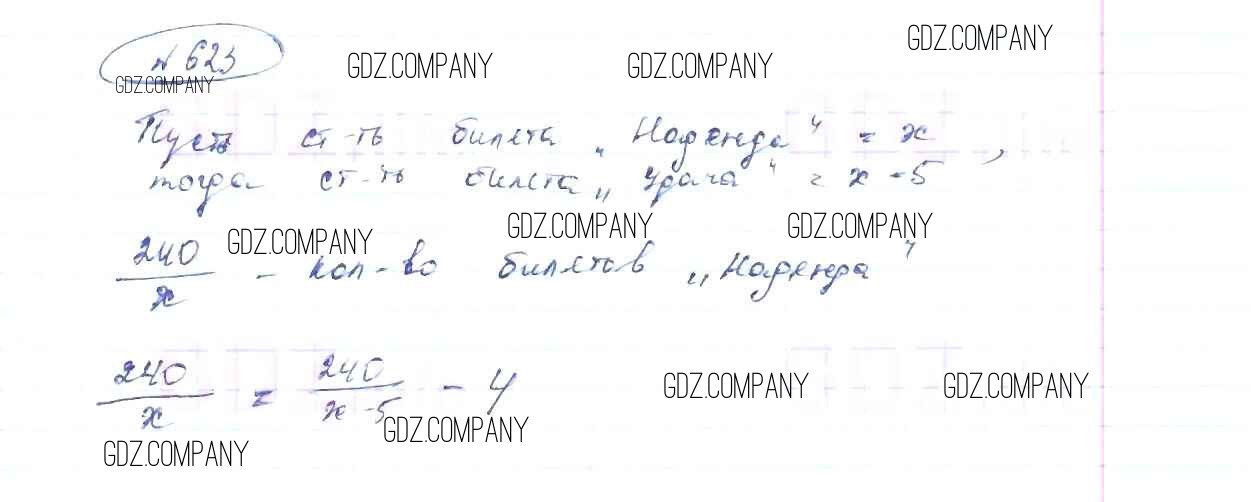 № 623
GDZ.COMPANY GDZ.COMPANY GDZ.COMPANY GDZ.COMPANY
Пусть ст-ть билета „Надежда“ = x,
тогда ст-ть билета „Удача“ = x - 5
GDZ.COMPANY GDZ.COMPANY GDZ.COMPANY
240/x - кол-во билетов „Надежда“
240/x = 240/x-5 - 4
GDZ.COMPANY GDZ.COMPANY GDZ.COMPANY GDZ.COMPANY